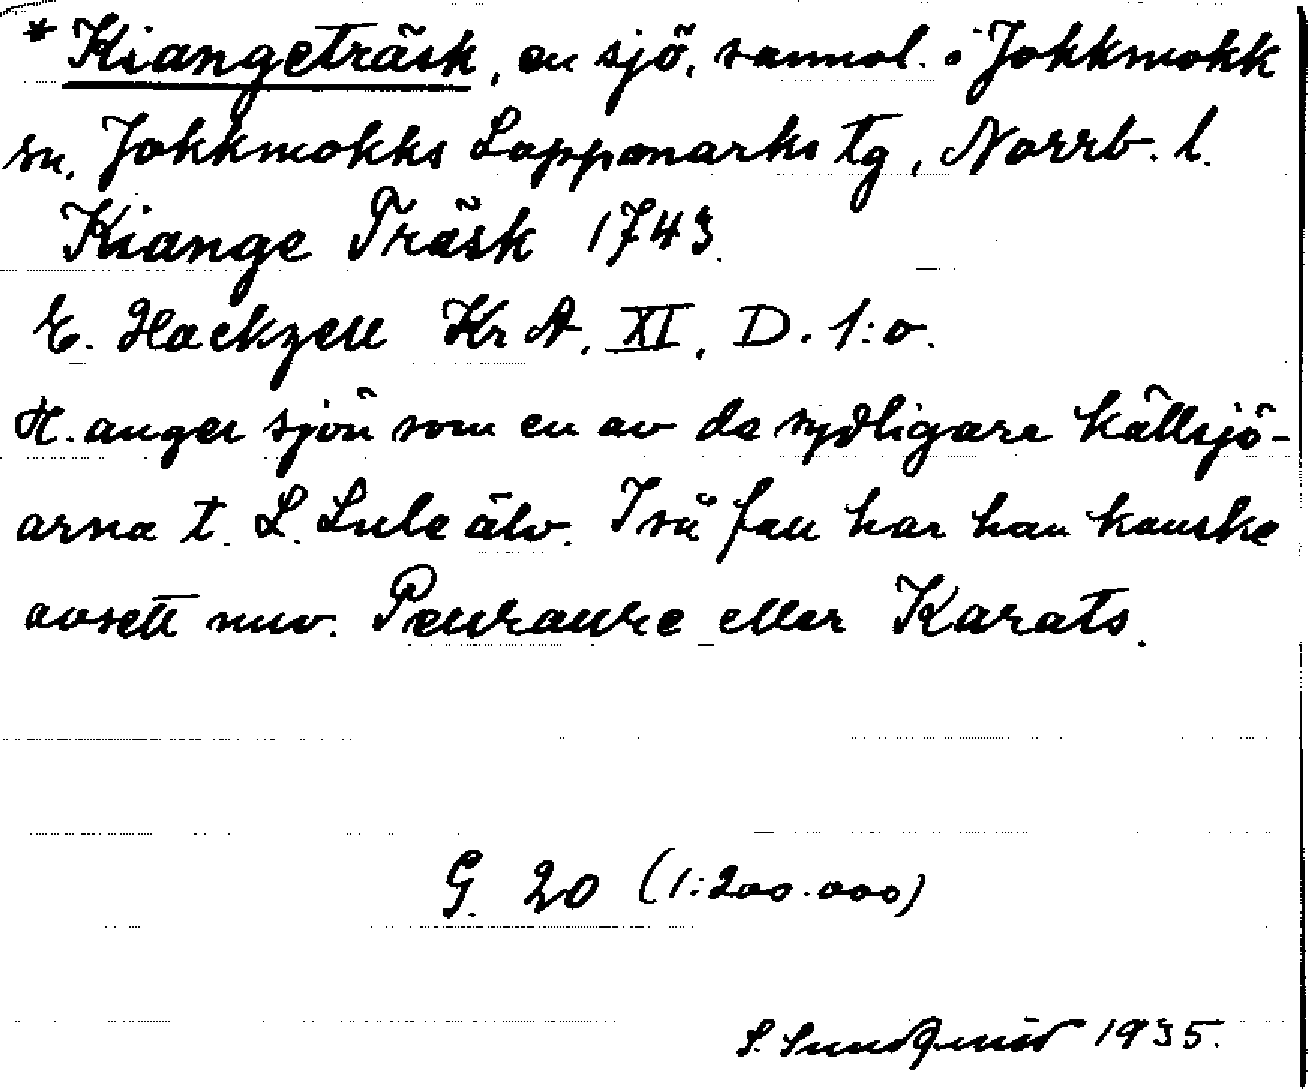 * Kiangeträsk, en sjö, sannol. i Jokkmokk
sn, Jokkmokks Lappmarks tg, Norrb. l.
Kiange Träsk 1743.
E. Hackzell Kr A. XI. D. 1:o.
H. anger sjön som en av de sydligare källsjö-
arna t. L. Lule älv. I så fall har han kanske
avsett nuv. Peuraure eller Karats.
G. 20 (1:200.000)
S. Sundqvist 1935.